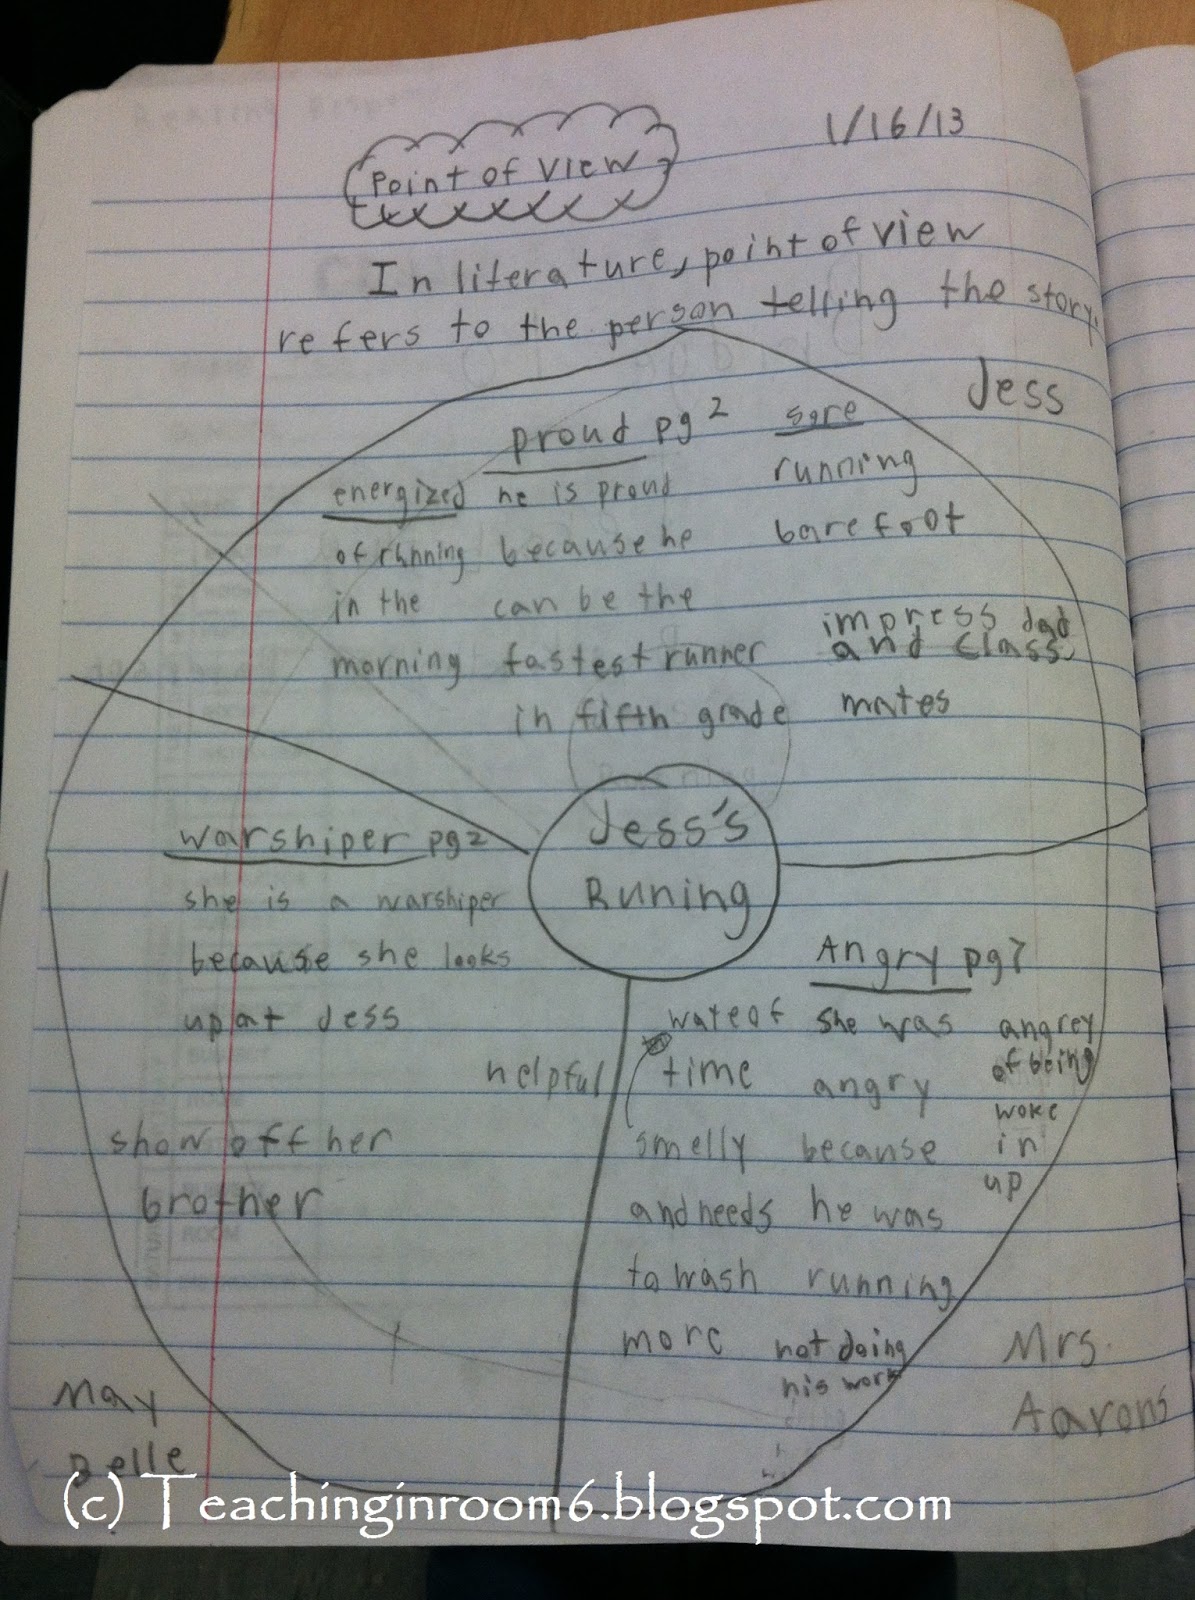 1/16/13
Point of View
In literature, point of view
refers to the person telling the story.
Jess
energized
of running
in the
morning
proud pg 2
he is proud
because he
can be the
fastest runner
in fifth grade
sore
running
barefoot
impress dad
and class
mates
Jess's
Runing
warshiper pg 2
she is a warshiper
because she looks
up at Jess
helpful
show off her
brother
May
Belle
Angry pg 7
wate of
time
smelly
and needs
to wash
more
she was
angry
because
he was
running
not doing
his work
angrey
of being
woke
in
up
Mrs.
Aarons
(c) Teachinginroom6.blogspot.com